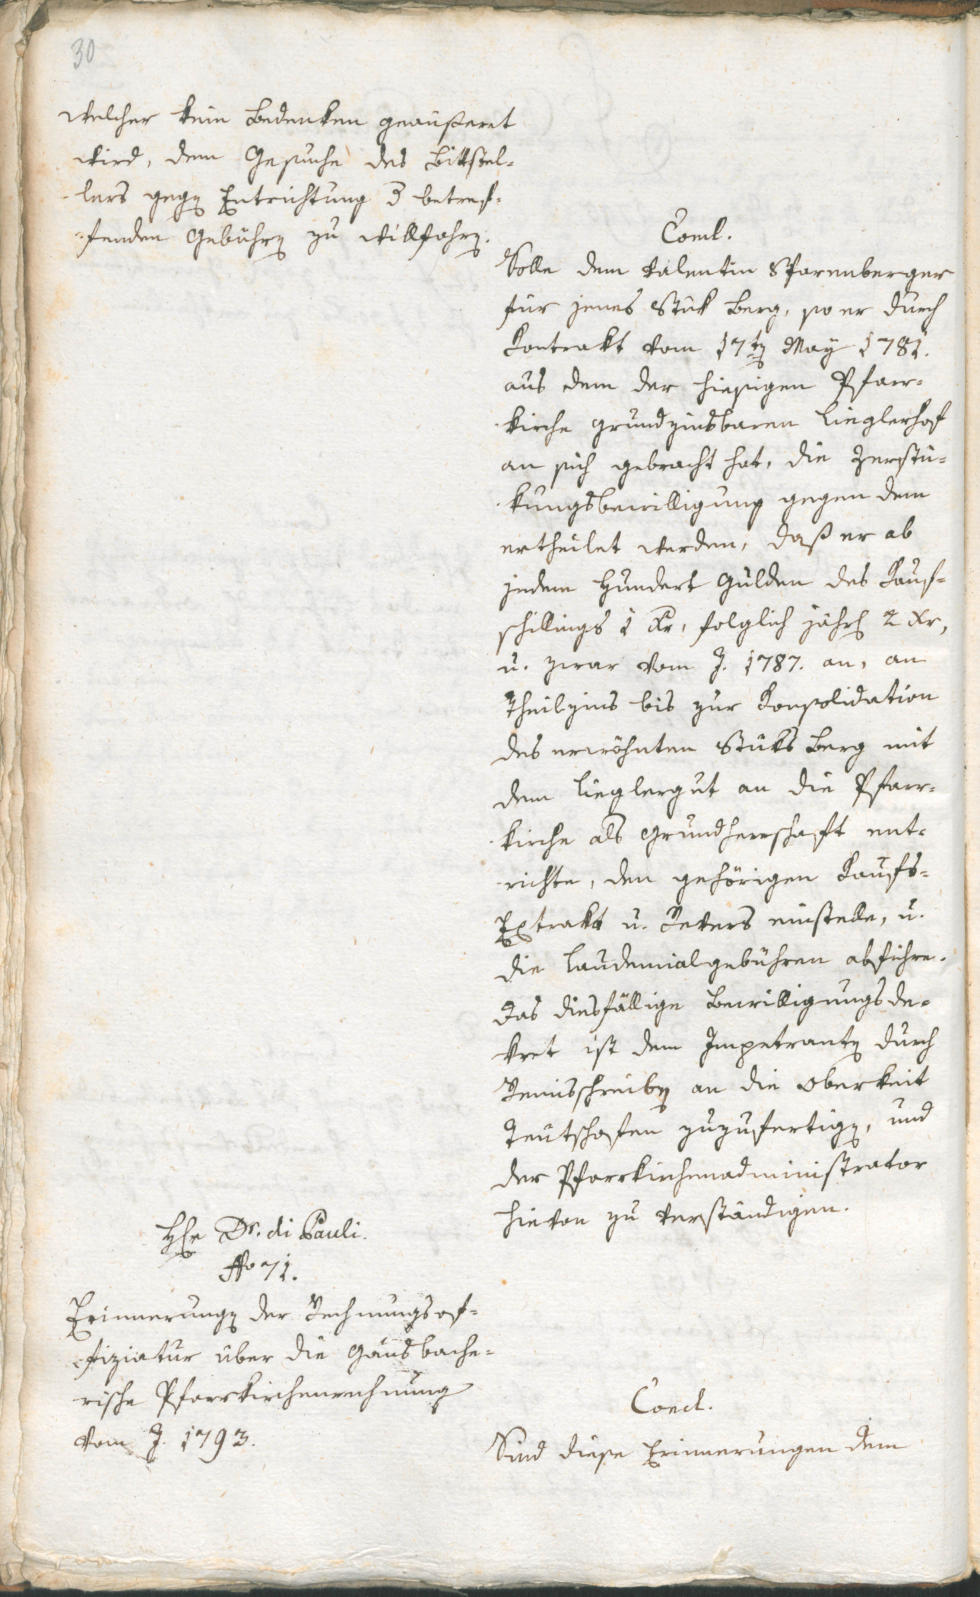 30
welcher kein Bedenken geäußeret
wird, dem Gesuche des Bittstel-
lers gegen Entrichtung d betref-
fenden Gebühren zu willfahren.
Concl.
Solle dem Valentin Sparenberger
für jenes Stük Berg, so er durch
Kontrakt vom 17ten May 1781.
aus dem der hiesigen Pfarr-
kirche grundzinsbaren Lieglerhof
an sich gebracht hat, die Zerstü-
kungsbewilligung gegen dem
ertheilet werden, daß er ab
jedem Hundert Gulden des Kauf-
schillings 1 Kr, folglich jährl 2 Kr,
u. zwar vom J. 1787. an, an
Theilzins bis zur Konsolidation
des erwöhnten Stüks Berg mit
dem Lieglergut an die Pfarr-
kirche als Grundherrschaft ent-
richte, den gehörigen Kaufs-
Extrakt u. Revers einstelle, u.
die Laudemialgebühren abführe.
Das diesfällige Bewilligungsde-
kret ist dem Impetranten durch
Remisschreiben an die Oberkeit
Teutschofen zuzufertigen, und
der Pfarrkirchenadministrator
hievon zu verständigen.
HHr Dr. di Pauli.
No 71.
Erinnerungen der Rechnungsof-
fiziatur über die Gausbache-
rische Pfarrkirchenrechnung
vom J. 1793.
Concl.
Sind diese Erinnerungen dem